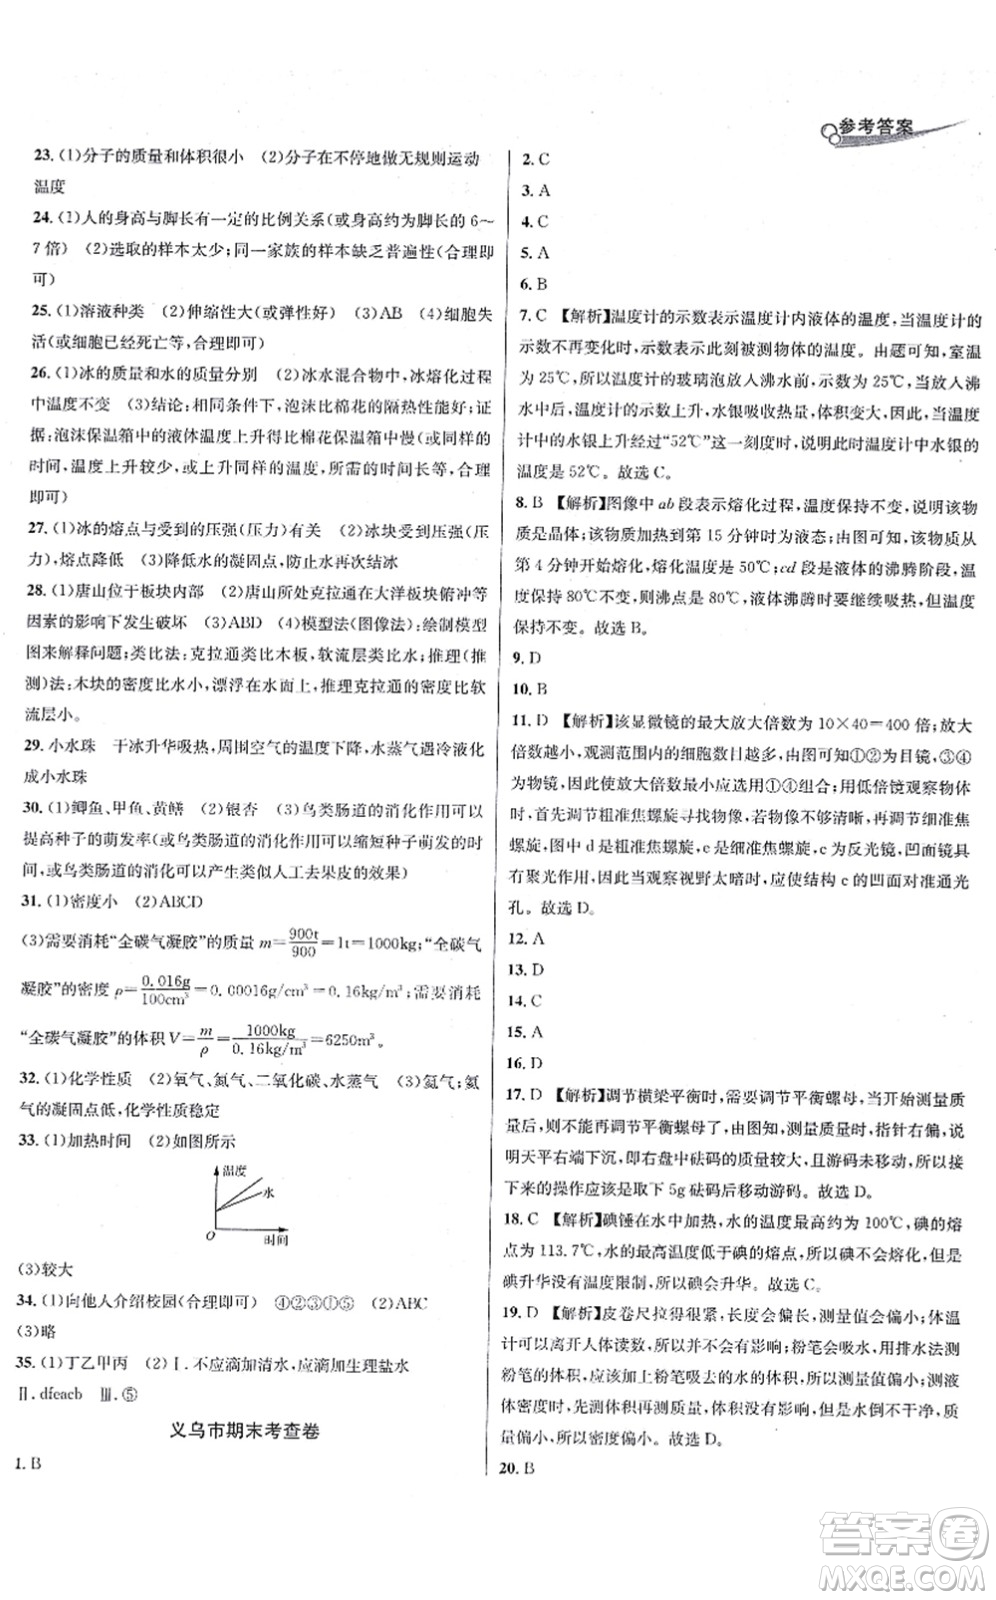 参考答案
23. (1)分子的质量和体积很小　(2)分子在不停地做无规则运动
温度
24. (1)人的身高与脚长有一定的比例关系(或身高约为脚长的 6～
7 倍)　(2)选取的样本太少;同一家族的样本缺乏普遍性(合理即
可)
25. (1)溶液种类　(2)伸缩性大(或弹性大)　(3)AB　(4)细胞失
活(或细胞已经死亡等,合理即可)
26. (1)冰的质量和水的质量分别　(2)冰水混合物中,冰熔化过程
中温度不变　(3)结论:相同条件下,泡沫比棉花的隔热性能好;证
据:泡沫保温箱中的液体温度上升得比棉花保温箱中慢(或同样的
时间,温度上升较少,或上升同样的温度,所需的时间长等,合理
即可)
27. (1)冰的熔点与受到的压强(压力)有关　(2)冰块受到压强(压
力),熔点降低　(3)降低水的凝固点,防止水再次结冰
28. (1)唐山位于板块内部　(2)唐山所处克拉通在大洋板块俯冲等
因素的影响下发生破坏　(3)ABD　(4)模型法(图像法):绘制模型
图来解释问题;类比法:克拉通类比木板,软流层类比水;推理(推
测)法:木块的密度比水小,漂浮在水面上,推理克拉通的密度比软
流层小。
29. 小水珠　干冰升华吸热,周围空气的温度下降,水蒸气遇冷液化
成小水珠
30. (1)鲫鱼、甲鱼、黄鳝　(2)银杏　(3)鸟类肠道的消化作用可以
提高种子的萌发率(或鸟类肠道的消化作用可以缩短种子萌发的时
间,或鸟类肠道的消化可以产生类似人工去果皮的效果)
31. (1)密度小　(2)ABCD
(3)需要消耗“全碳气凝胶”的质量 m=900t/900=1t=1000kg;“全碳气
凝胶”的密度 ρ=0.016g/100cm³=0.00016g/cm³=0.16kg/m³;需要消耗
“全碳气凝胶”的体积 V=m/ρ=1000kg/0.16kg/m³=6250m³。
32. (1)化学性质　(2)氧气、氮气、二氧化碳、水蒸气　(3)氦气;氦
气的凝固点低,化学性质稳定
33. (1)加热时间　(2)如图所示
温度
水
O
时间
(3)较大
34. (1)向他人介绍校园(合理即可)　④②③①⑤　(2)ABC
(3)略
35. (1)丁乙甲丙　(2)Ⅰ. 不应滴加清水,应滴加生理盐水
Ⅱ. dfeacb　Ⅲ. ⑤
义乌市期末考查卷
1. B
2. C
3. A
4. C
5. A
6. B
7. C　【解析】温度计的示数表示温度计内液体的温度,当温度计的
示数不再变化时,示数表示此刻被测物体的温度。由题可知,室温
为 25℃,所以温度计的玻璃泡放入沸水前,示数为 25℃,当放入沸
水中,温度计的示数上升,水银吸收热量,体积变大,所以,当温度
计中的水银上升经过“52℃”这一刻度时,说明此时温度计中水银的
温度是 52℃。故选 C。
8. B　【解析】图像中 ab 段表示熔化过程,温度保持不变,说明该物
质是晶体;该物质加热到第 15 分钟时为液态;由图可知,该物质从
第 4 分钟开始熔化,熔化温度是 50℃;cd 段是液体的沸腾阶段,温
度保持 100℃不变,则沸点是 100℃,液体沸腾时要继续吸热,但温度
保持不变。故选 B。
9. D
10. B
11. D　【解析】该显微镜的最大放大倍数为 10×40=400 倍;放大
倍数越小,观测范围内的细胞数目越多,由图可知①②为目镜,③④
为物镜,因此使放大倍数最小应选用①④组合;用低倍镜观察物体
时,首先调节粗准焦螺旋寻找物像,若物像不够清晰,再调节细准焦
螺旋,图中 d 是粗准焦螺旋,c 是细准焦螺旋;e 为反光镜,凹面镜具
有聚光作用,因此,当观察视野太暗时,应使结构 c 的凹面对准通光
孔。故选 D。
12. A
13. D
14. C
15. A
16. D
17. D　【解析】调节横梁平衡时,需要调节平衡螺母,当开始测量质
量时,不能再次调节平衡螺母了;由图知,测量质量时,指针右偏,说
明天平右端下沉,即右盘中砝码的质量较大,且游码未移动,所以接
下来的操作应该是取下 5g 砝码后移动游码。故选 D。
18. C　【解析】碘锤在水中加热,水的温度最高约为 100℃,碘的熔
点为 113.7℃,水的最高温度低于碘的熔点,所以碘不会熔化,由于
碘升华没有温度限制,所以碘会升华。故选 C。
19. D　【解析】皮卷尺拉得很紧,长度会偏长,测量值会偏小;体温
计可以离开人体读数,所以不会有影响;粉笔会吸水,用排水法测量
粉笔的体积,体积会加上粉笔吸去的水的体积,所以测量值偏小;先
测出固体体积再测质量,体积没有影响,但水倒不干净,质量偏大,
质量偏小,所以密度偏小。故选 D。
20. B
答案卷
MXQE.COM